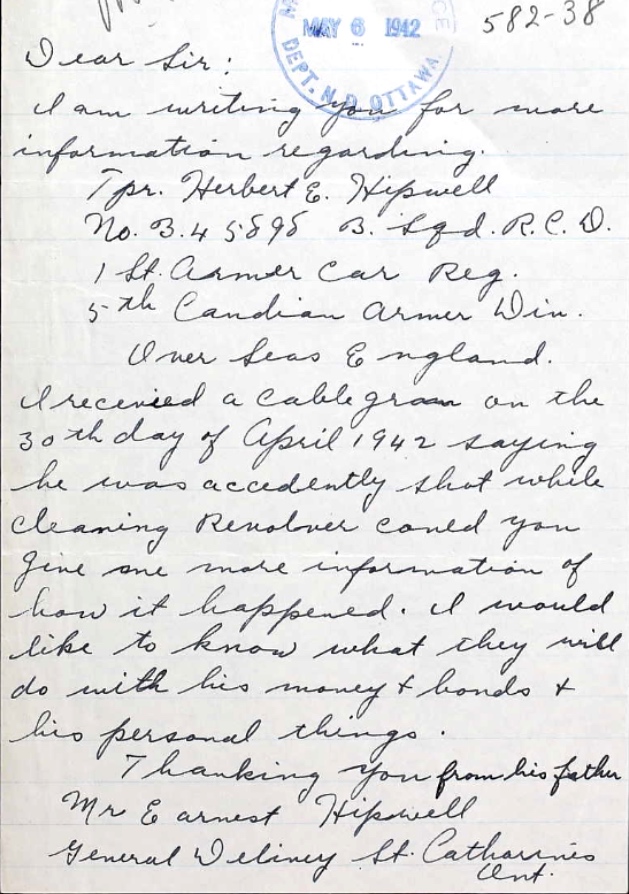 582-38
MAY 6 1942
DEPT. N.D. OTTAWA
Dear Sir:
I am writing you for more
information regarding.
Tpr. Herbert E. Hipwell
No. B.45898 B. Sqd. R.C.D.
1 St. Armer Car Reg.
5th Candian Armer Div.
Over Seas England.
I recevied a cablegram on the
30th day of April 1942 saying
he was accedently shot while
cleaning Revolver coued you
give me more information of
how it happened. I would
like to know what they will
do with his money & bonds &
his personal things.
Thanking you from his father
Mr Earnest Hipwell
General Delivey St. Catharines
Ont.